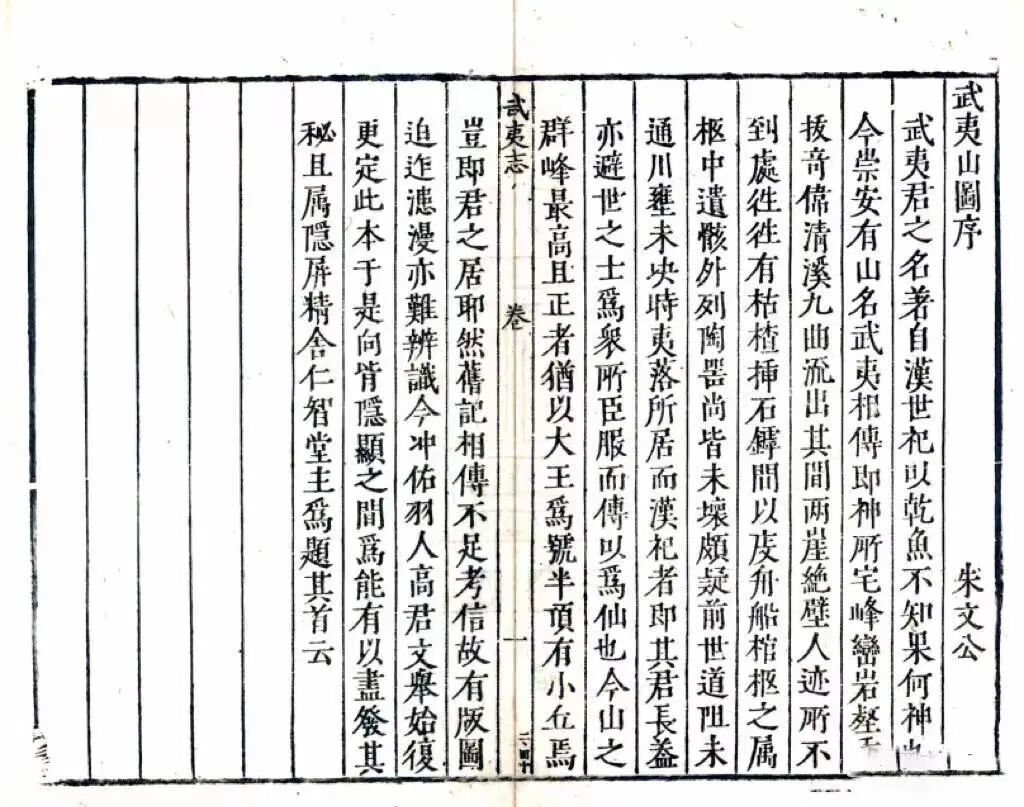 武夷山圖序 朱文公
武夷君之名著自漢世祀以乾魚不知果何神也
今崇安有山名武夷相傳即神所宅峰巒岩壑
拔竒偉清溪九曲流出其間两崖絶壁人迹所不
到處徃徃有枯楂挿石罅間以庋舟船棺柩之属
柩中遺骸外列陶器尚皆未壞頗疑前世道阻未
通川壅未决時夷落所居而漢祀者即其君長蓋
亦避世之士爲衆所臣服而傳以爲仙也今山之
群峰最高且正者猶以大王爲號半頂有小丘焉
武夷志 卷 一
豈即君之居耶然舊記相傳不足考信故有版圖
迫迮漶漫亦難辨識今冲佑羽人高君文舉始復
更定此本于是向背隱顯之間爲能有以盡發其
秘且属隱屏精舍仁智堂主爲題其首云